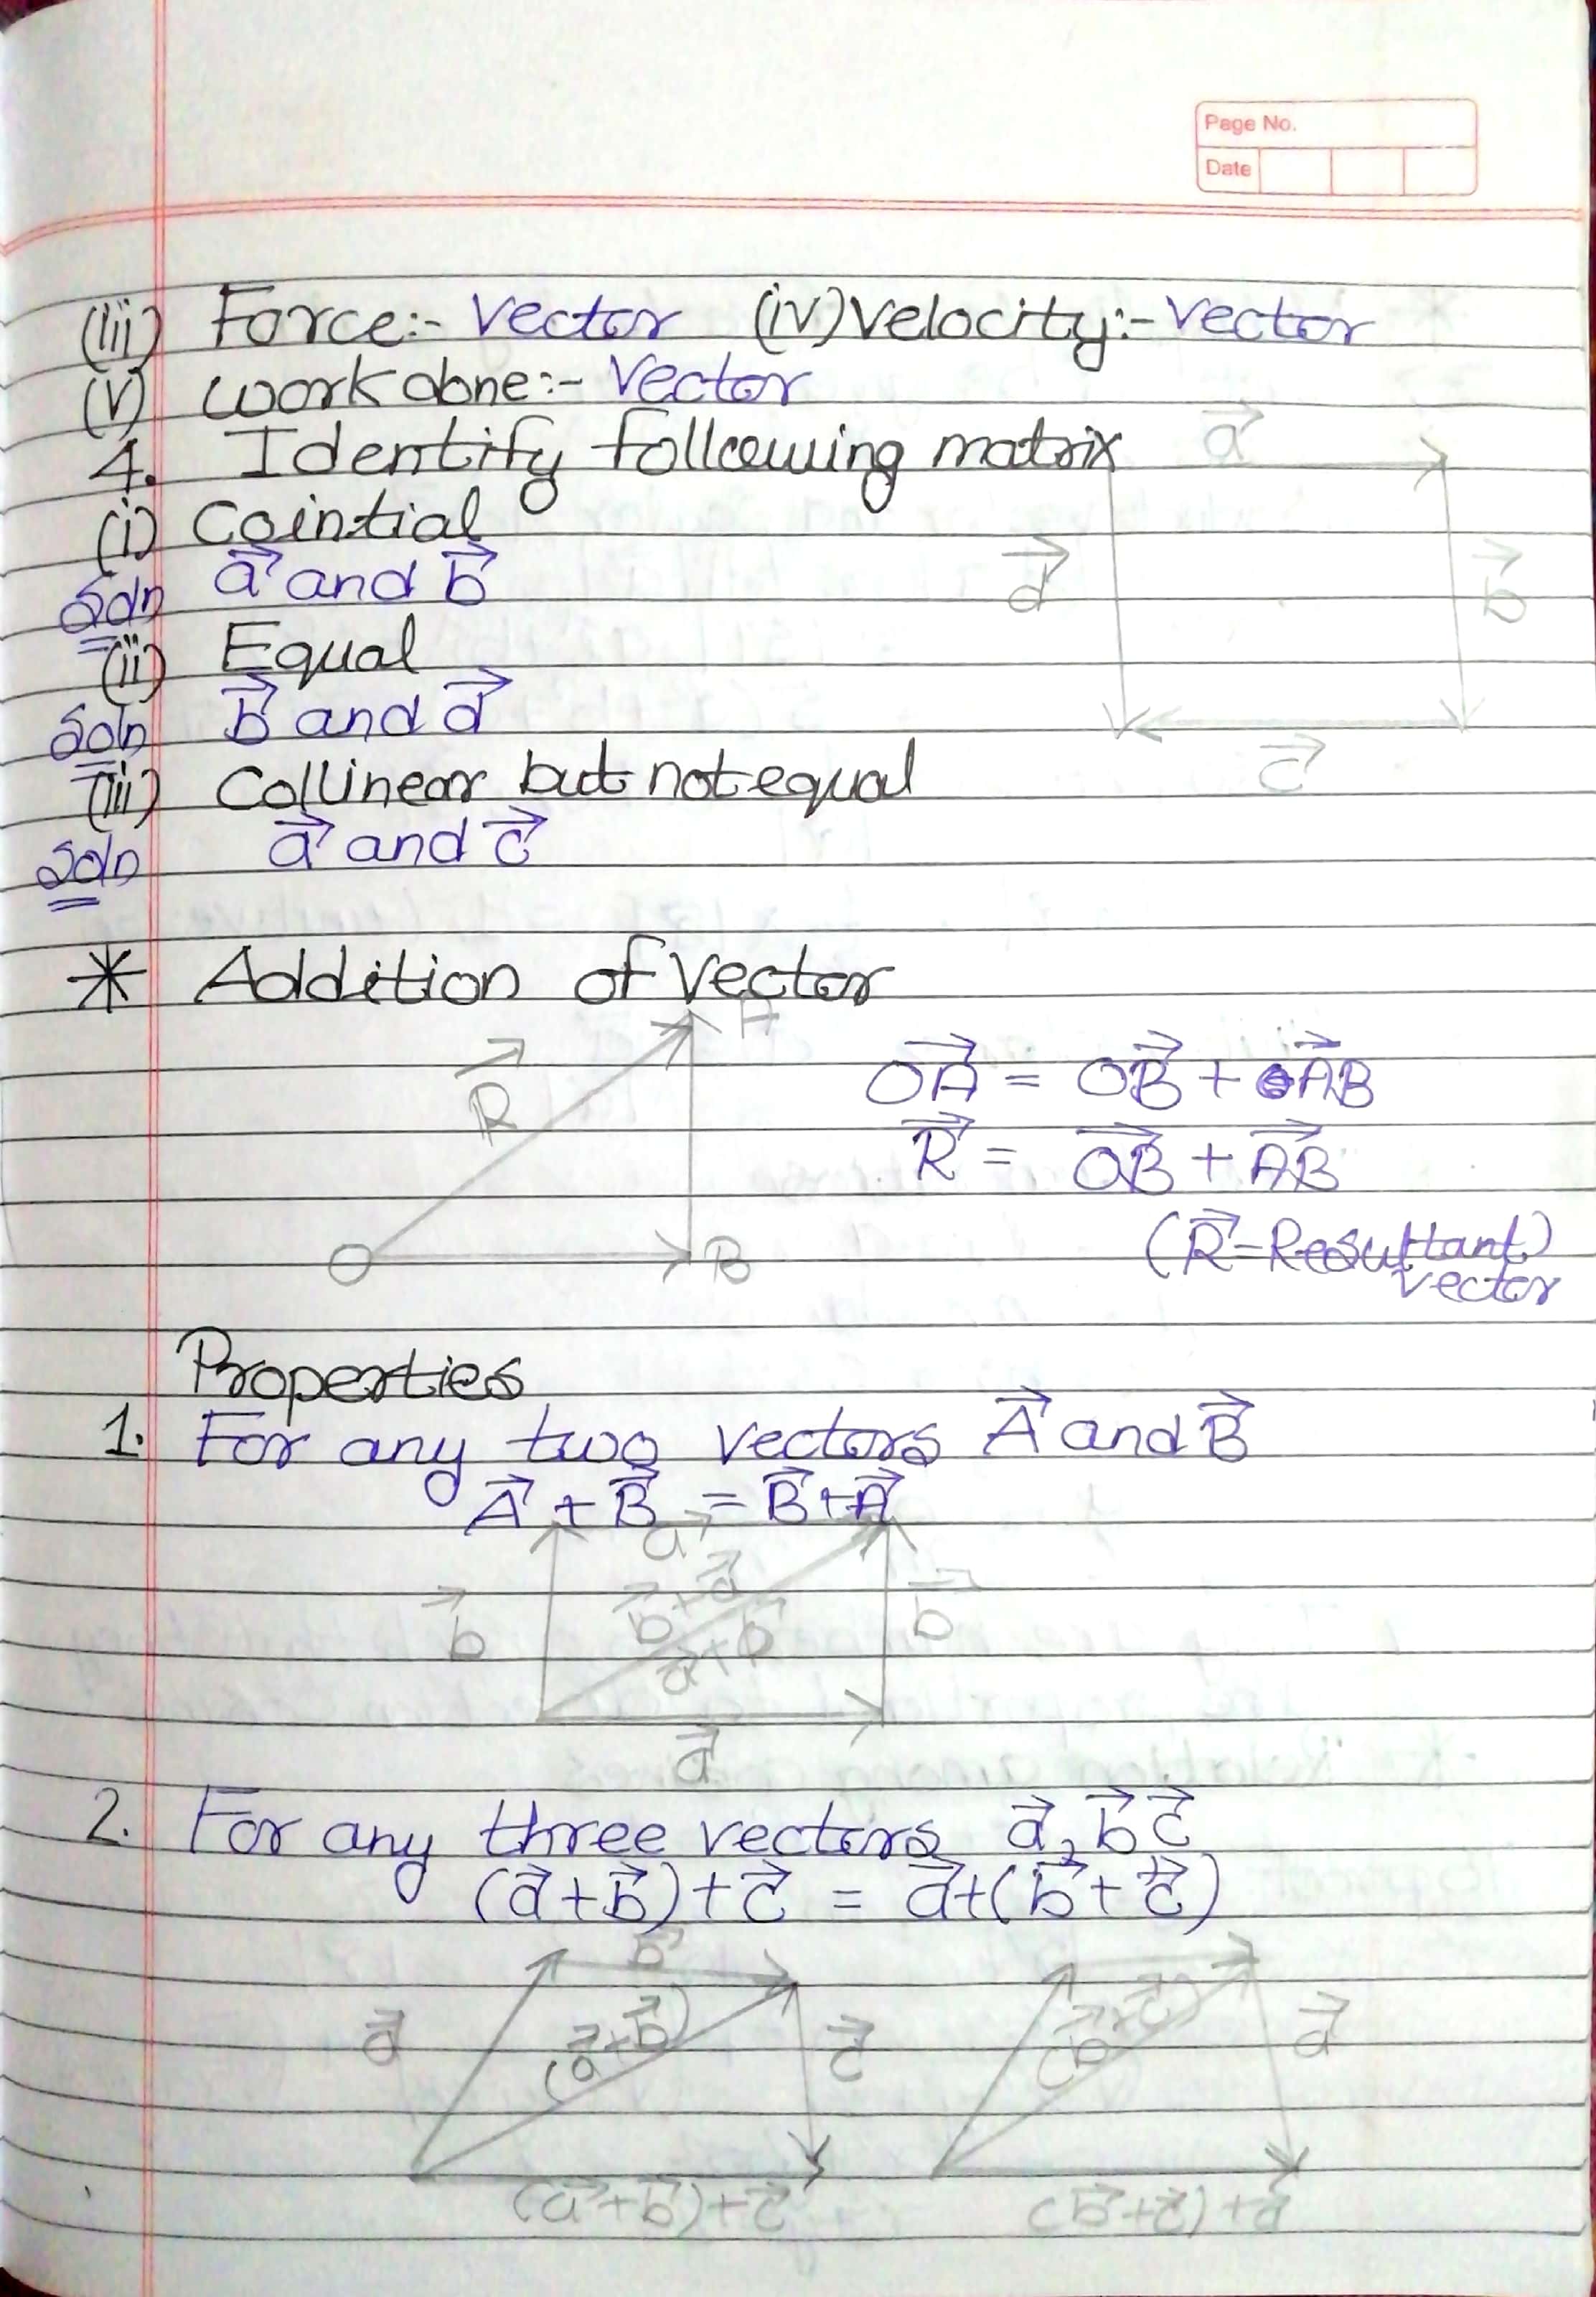 Page No.
Date
(iii) Force:- Vector (iv) Velocity:- Vector
(v) Work done:- Vector
4. Identify following matrix
(i) Cointial
Soln a⃗ and b⃗
(ii) Equal
Soln b⃗ and d⃗
(iii) Collinear but not equal
Soln a⃗ and c⃗
a⃗
d⃗
b⃗
c⃗
* Addition of Vector
A
R⃗
O
B
OA⃗ = OB⃗ + AB⃗
R⃗ = OB⃗ + AB⃗
(R⃗ = Resultant)
vector
Properties
1. For any two vectors A⃗ and B⃗
A⃗ + B⃗ = B⃗ + A⃗
a⃗
b⃗
b⃗ + a⃗
a⃗ + b⃗
b⃗
a⃗
2. For any three vectors a⃗, b⃗ c⃗
(a⃗ + b⃗) + c⃗ = a⃗ + (b⃗ + c⃗)
b⃗
a⃗
(a⃗ + b⃗)
c⃗
(a⃗ + b⃗) + c⃗
(b⃗ + c⃗)
a⃗
(b⃗ + c⃗) + a⃗